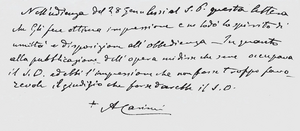 Nell'udienza del 28 Gen. lessi al S. P. questa lettera
che Gli fece ottima impressione e ne lodò lo spirito di
umiltà e disposizioni all'obbedienza. In quanto
alla pubblicazione dell'opera mi disse che se ne occupava
il S. O. ed ebbi l'impressione che non fosse troppo favo-
revole il giudizio che farebbe il S. O.
+